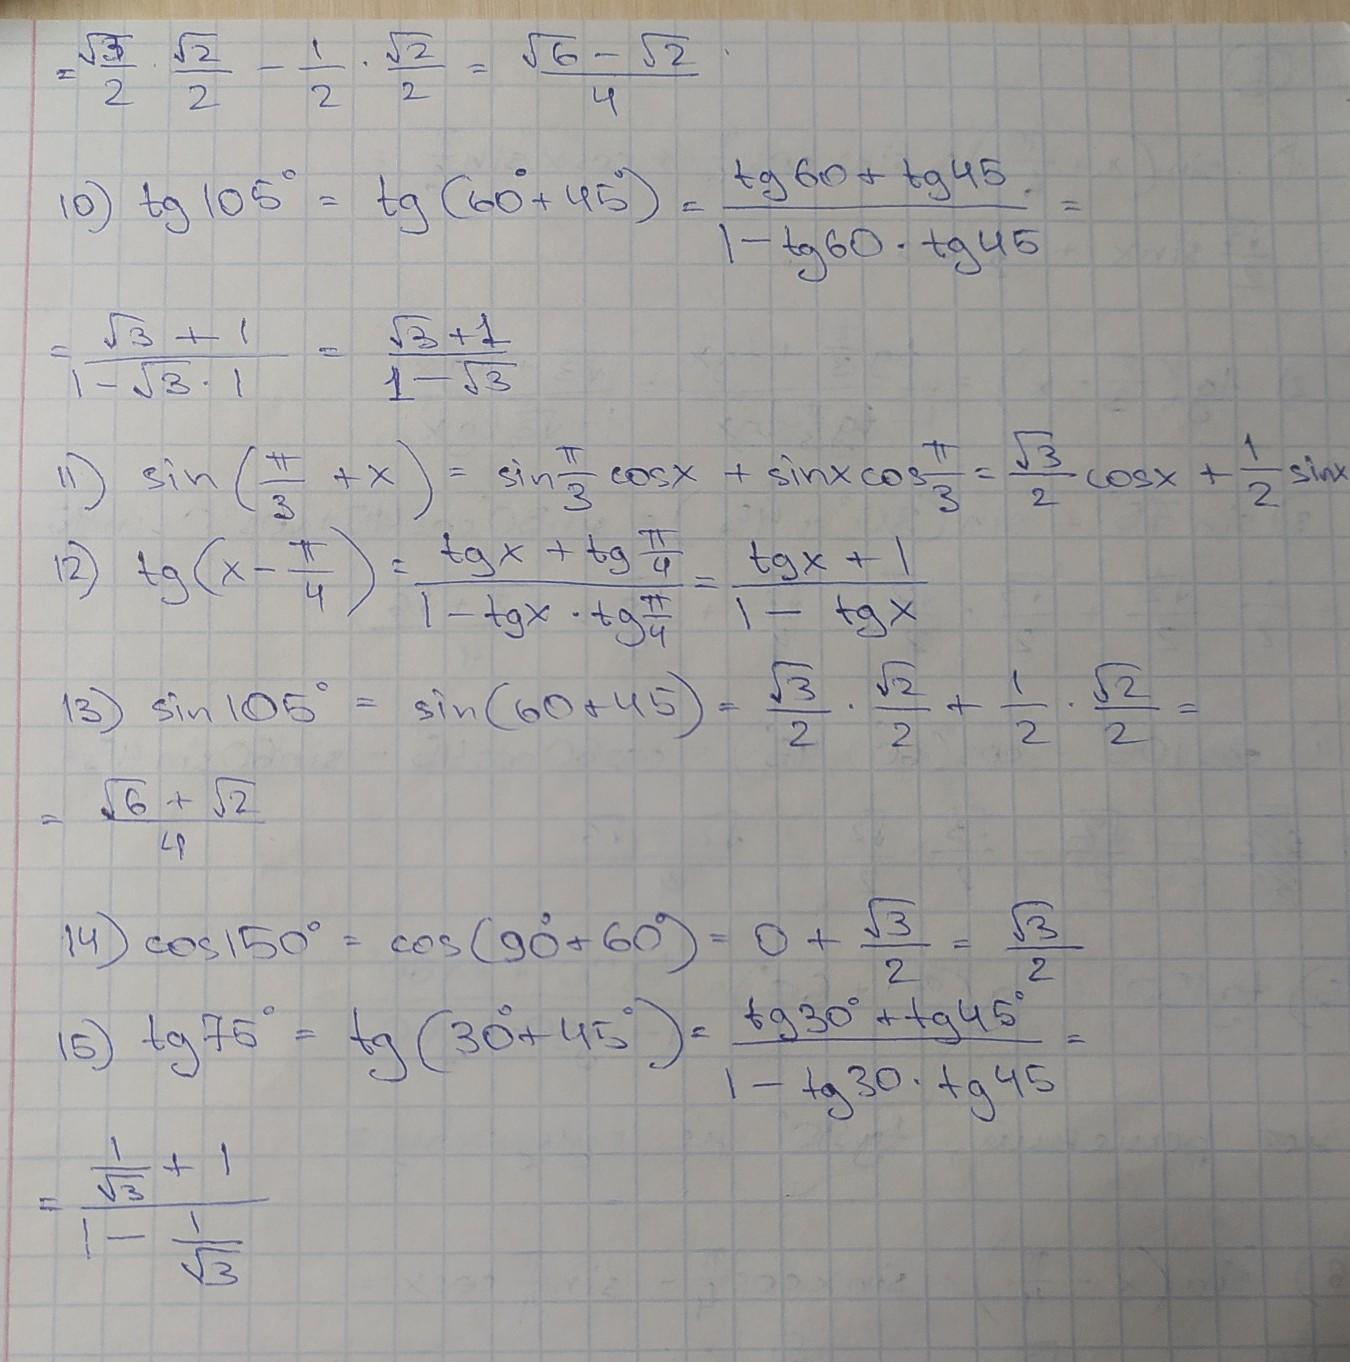 = √3/2 · √2/2 − 1/2 · √2/2 = (√6 − √2)/4
10) tg 105° = tg (60° + 45°) = (tg 60 + tg 45)/(1 − tg 60 · tg 45) =
= (√3 + 1)/(1 − √3 · 1) = (√3 + 1)/(1 − √3)
11) sin (π/3 + x) = sin π/3 cos x + sin x cos π/3 = √3/2 cos x + 1/2 sin x
12) tg (x − π/4) = (tg x + tg π/4)/(1 − tg x · tg π/4) = (tg x + 1)/(1 − tg x)
13) sin 105° = sin (60 + 45) = √3/2 · √2/2 + 1/2 · √2/2 =
= (√6 + √2)/4
14) cos 150° = cos (90° + 60°) = 0 + √3/2 = √3/2
15) tg 75° = tg (30° + 45°) = (tg 30° + tg 45°)/(1 − tg 30 · tg 45) =
= (1/√3 + 1)/(1 − 1/√3)